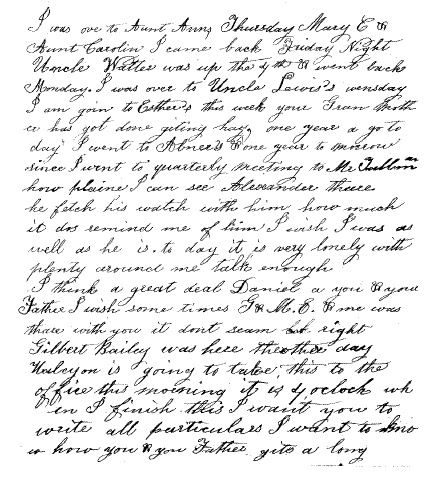 I was ove to Aunt Anns Thursday Mary E &
Aunt Carolin I came back Friday Night
Uncle Walter was up the 4 th & went back
Monday. I was over to Uncle Lewis's wensday
I am goin to Esther's this week your Gran Moth
er has got done giting hay, one year a go to
day I went to Abner's & one year to morow
since I went to quarterly meeting to Mc
how plaine I can see Alexander there
he fetch his watch with him how much
it dos remind me of him I wish I was as
well as he is. to day it is very lonely with
plenty around me talk enough
I think a great deal Daniel a you & your
Father I wish some times G & M. E. & me was
thare with you it dont seam right
Gilbert Bailey was here the other day
Halcyon is going to take this to the
office this morning it is 4 oclock wh
en I finish this I want you to
write all particulars I want to kno
w how you & you Father gits a long